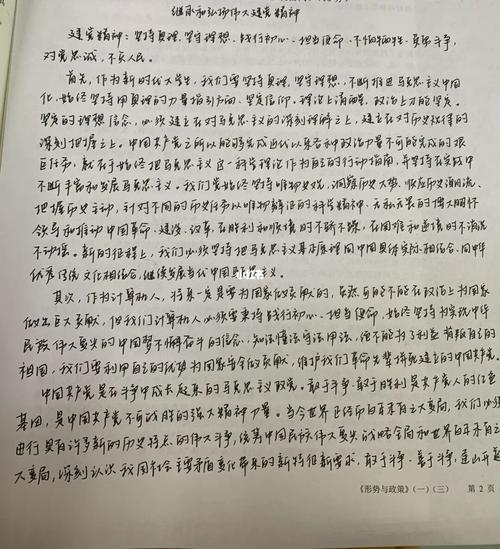 继承和弘扬伟大建党精神
建党精神：坚持真理，坚守理想、践行初心、担当使命、不怕牺牲、英勇斗争，
对党忠诚，不负人民。
首先，作为新时代大学生，我们要坚持真理，坚守理想、不断推进马克思主义中国
化，始终坚持用真理的力量指引方向。坚定信仰，理论上清醒，政治上才能坚定。
坚定的理想信念，必须建立在对马克思主义的深刻理解之上，建立在对历史规律的
深刻把握之上。中国共产党之所以能够完成近代以来各种政治力量不可能完成的艰
巨任务，就在于始终把马克思主义这一科学理论作为自己的行动指南，并坚持在实践中
不断丰富和发展马克思主义。我们党始终坚持唯物史观，洞察历史大势、顺应历史潮流、
把握历史主动，针对不同的历史任务以唯物辩证的科学精神、无私无畏的博大胸怀
领导和推动中国革命、建设、改革，在胜利和顺境时不骄不躁，在困难和逆境时不消沉
不动摇。新的征程上，我们必须坚持把马克思主义基本原理同中国具体实际相结合、同中华
优秀传统文化相结合，继续发展当代中国马克思主义。
其次，作为计算机人，将来一定是要为国家做贡献的，虽然可能不能在政治上为国家
做出巨大贡献，但我们计算机人必须要秉持践行初心、担当使命，始终坚持为实现中华
民族伟大复兴的中国梦不懈奋斗的信念，知法懂法守法用法，绝不能为了利益背叛自己的
祖国，我们要利用自己的优势为国家安全做贡献，维护我们革命先辈拼死建立的中国共产党。
中国共产党是在斗争中成长起来的马克思主义政党。敢于斗争、敢于胜利是共产党人的红色
基因，是中国共产党不可战胜的强大精神力量。当今世界正经历百年未有之大变局，我们必须
进行具有许多新的历史特点的伟大斗争，统筹中国民族伟大复兴战略全局和世界百年未有之
大变局，深刻认识我国社会主要矛盾变化带来的新特征新要求，敢于斗争、善于斗争，逢山开道
《形势与政策》(一)(三) 第 2 页